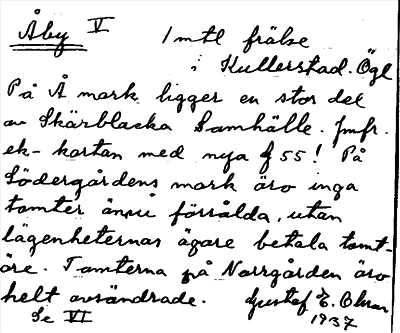 Åby V 1 mtl frälse
i Kullerstad. Ögl
På Å mark ligger en stor del
av Skärblacka Samhälle. Jmfr.
ek-kartan med nya § 55! På
Södergårdens mark äro inga
tomter ännu försålda, utan
lägenheternas ägare betala tomt-
öre. Tomterna på Norrgården äro
helt avsöndrade. Gustaf E. Olsson
Se VI 1937